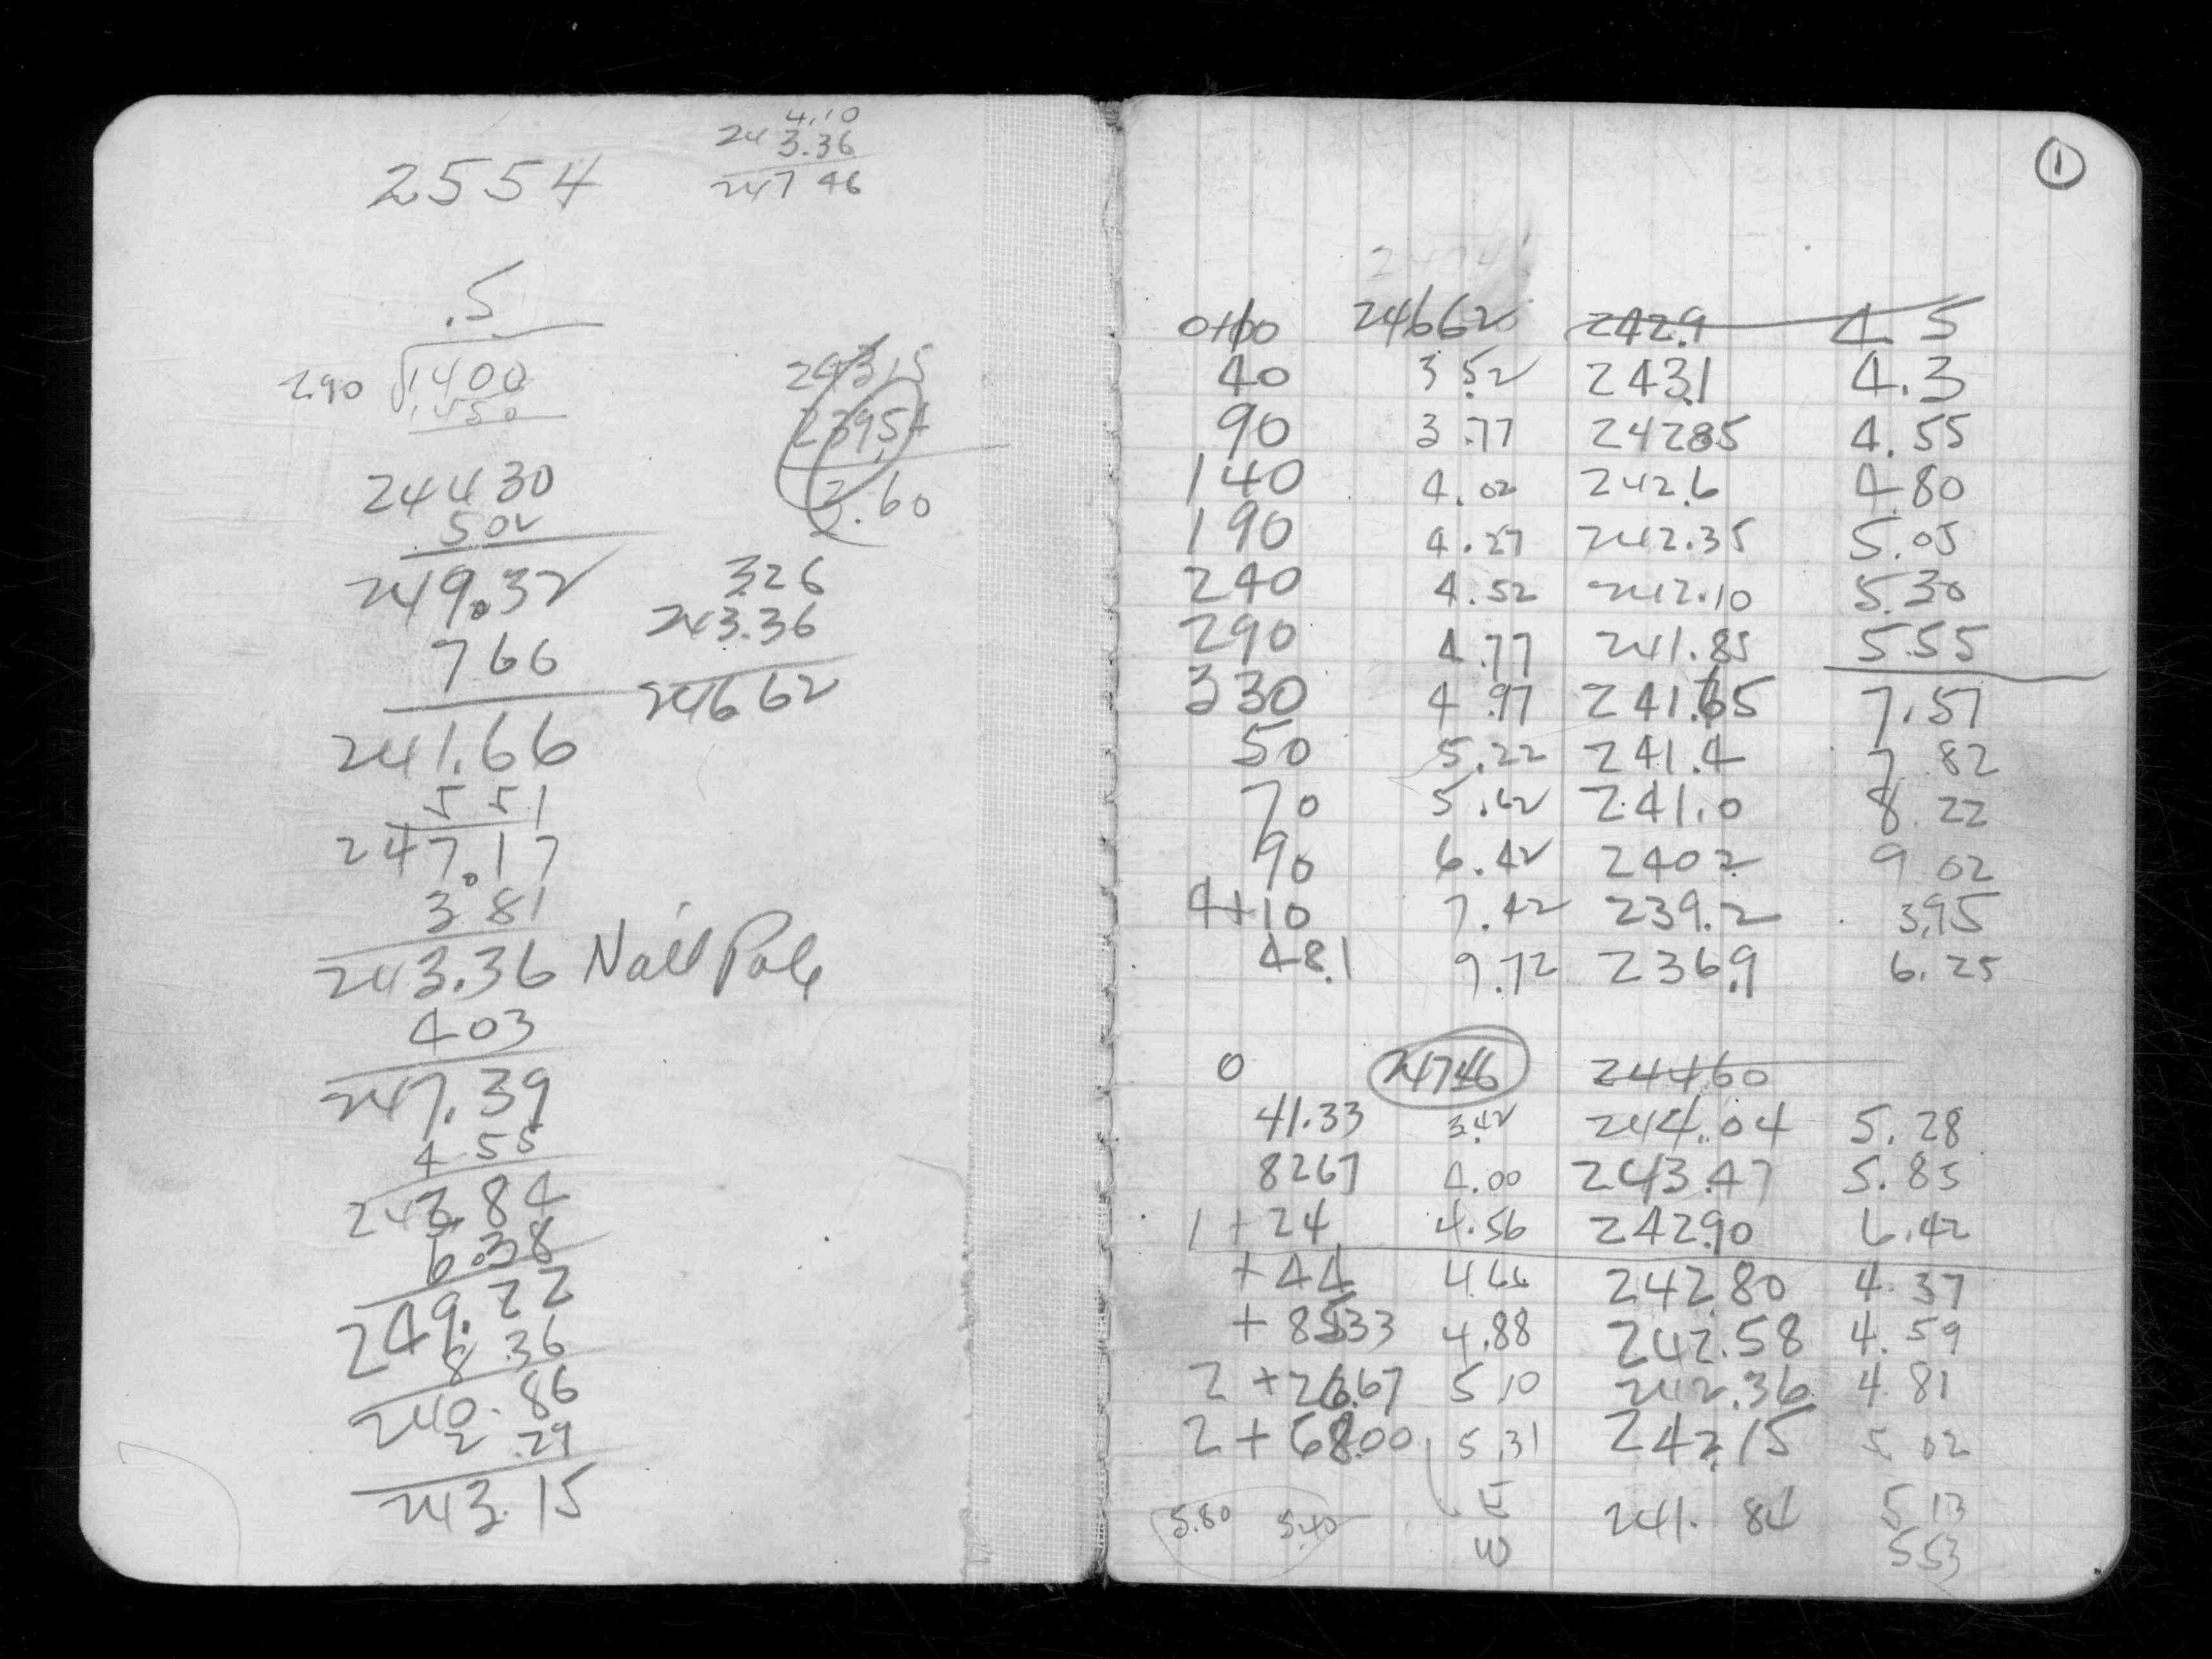 2554
4.10
243.36
247 46
.5
290 1400
1450
24430
5.02
249.32
766
241.66
5 51
247.17
3 81
243.36 Nail Pole
403
247.39
4 55
242.84
6.38
249.22
8 36
240.86
2 .29
243.15
243.15
239.54
3.60
3.26
243.36
24662
1
0+00 24662 242.9 4 5
40 3.52 243.1 4.3
90 3.77 242.85 4.55
140 4.02 242.6 4.80
190 4.27 242.35 5.05
240 4.52 242.10 5.30
290 4.77 241.85 5.55
330 4.97 241.65 7.57
50 5.22 241.4 7.82
70 5.62 241.0 8.22
90 6.42 240.2 9.02
4+10 7.42 239.2 3.95
48.1 9.72 236.9 6.25
0 24746 244.60
41.33 3.42 244.04 5.28
8267 4.00 243.47 5.85
1 + 24 4.56 242.90 6.42
+ 44 4.66 242.80 4.37
+ 8533 4.88 242.58 4.59
2 + 26.67 5 10 242.36 4.81
2 + 68.00 5.31 242.15 5 02
5.80 5.40 241. 84 5 13
5 53